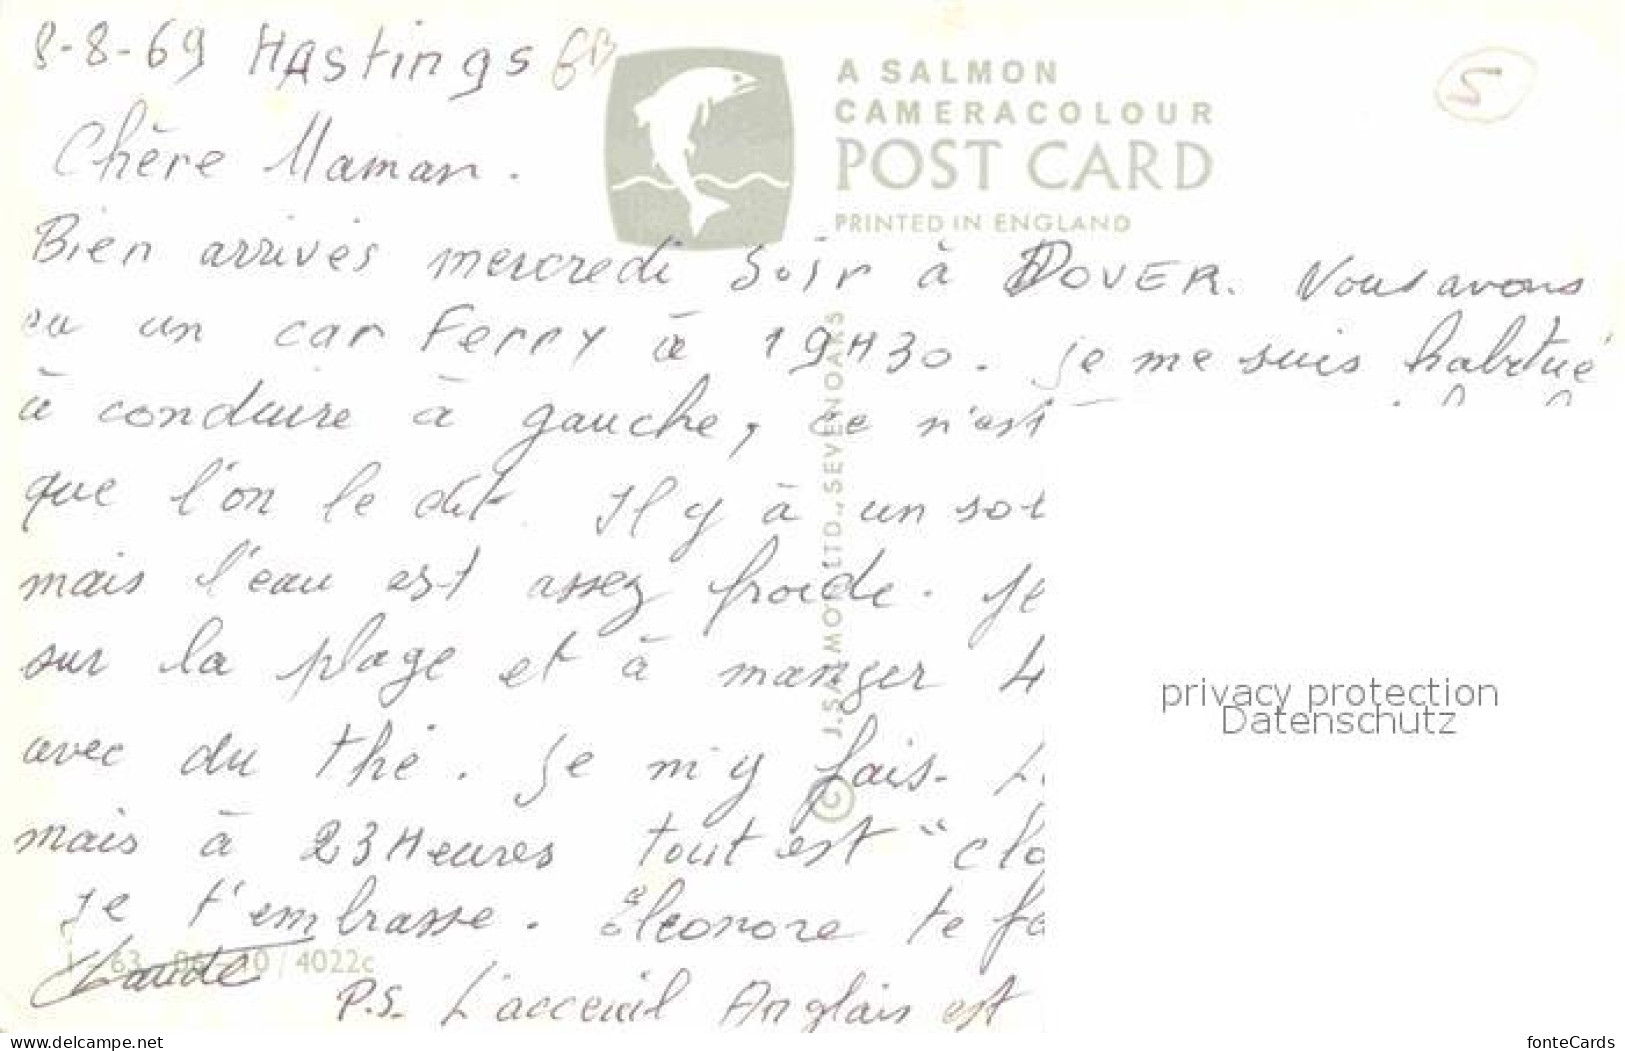 8-8-69 Hastings GB
A SALMON
CAMERACOLOUR
POST CARD
PRINTED IN ENGLAND
5
Chère Maman.
Bien arrivés mercredi soir à DOVER. Nous avons
eu un car Ferry à 19H30. Je me suis habitué
à conduire à gauche, ce n'est
que l'on le dit. Il y à un sol
mais l'eau est assez froide. Je
sur la plage et à manger 4
avec du thé. Je m'y fais.
mais à 23Heures tout est "clo
Je t'embrasse. Éléonore te fe
Claude
P.S. L'acceuil Anglais est
© J. SALMON LTD., SEVENOAKS
1-63-06-10/4022c
privacy protection
Datenschutz
www.delcampe.net
fonteCards